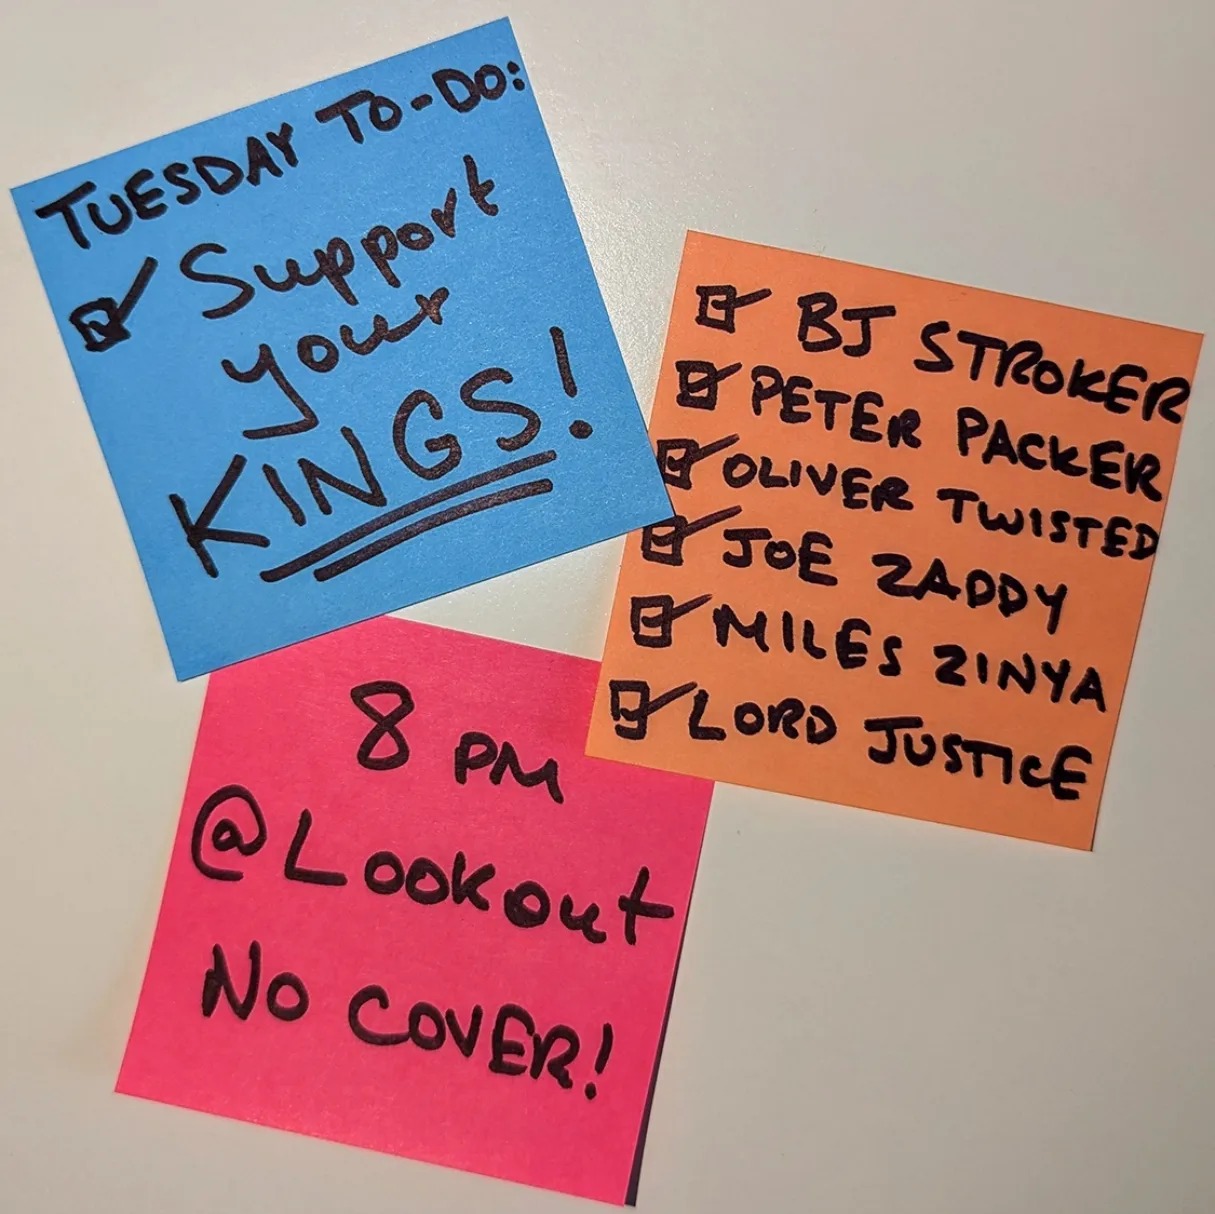 TUESDAY TO-DO:
Support
your
KINGS!
BJ STROKER
PETER PACKER
OLIVER TWISTED
JOE ZADDY
MILES ZINYA
LORD JUSTICE
8 PM
@Lookout
NO COVER!